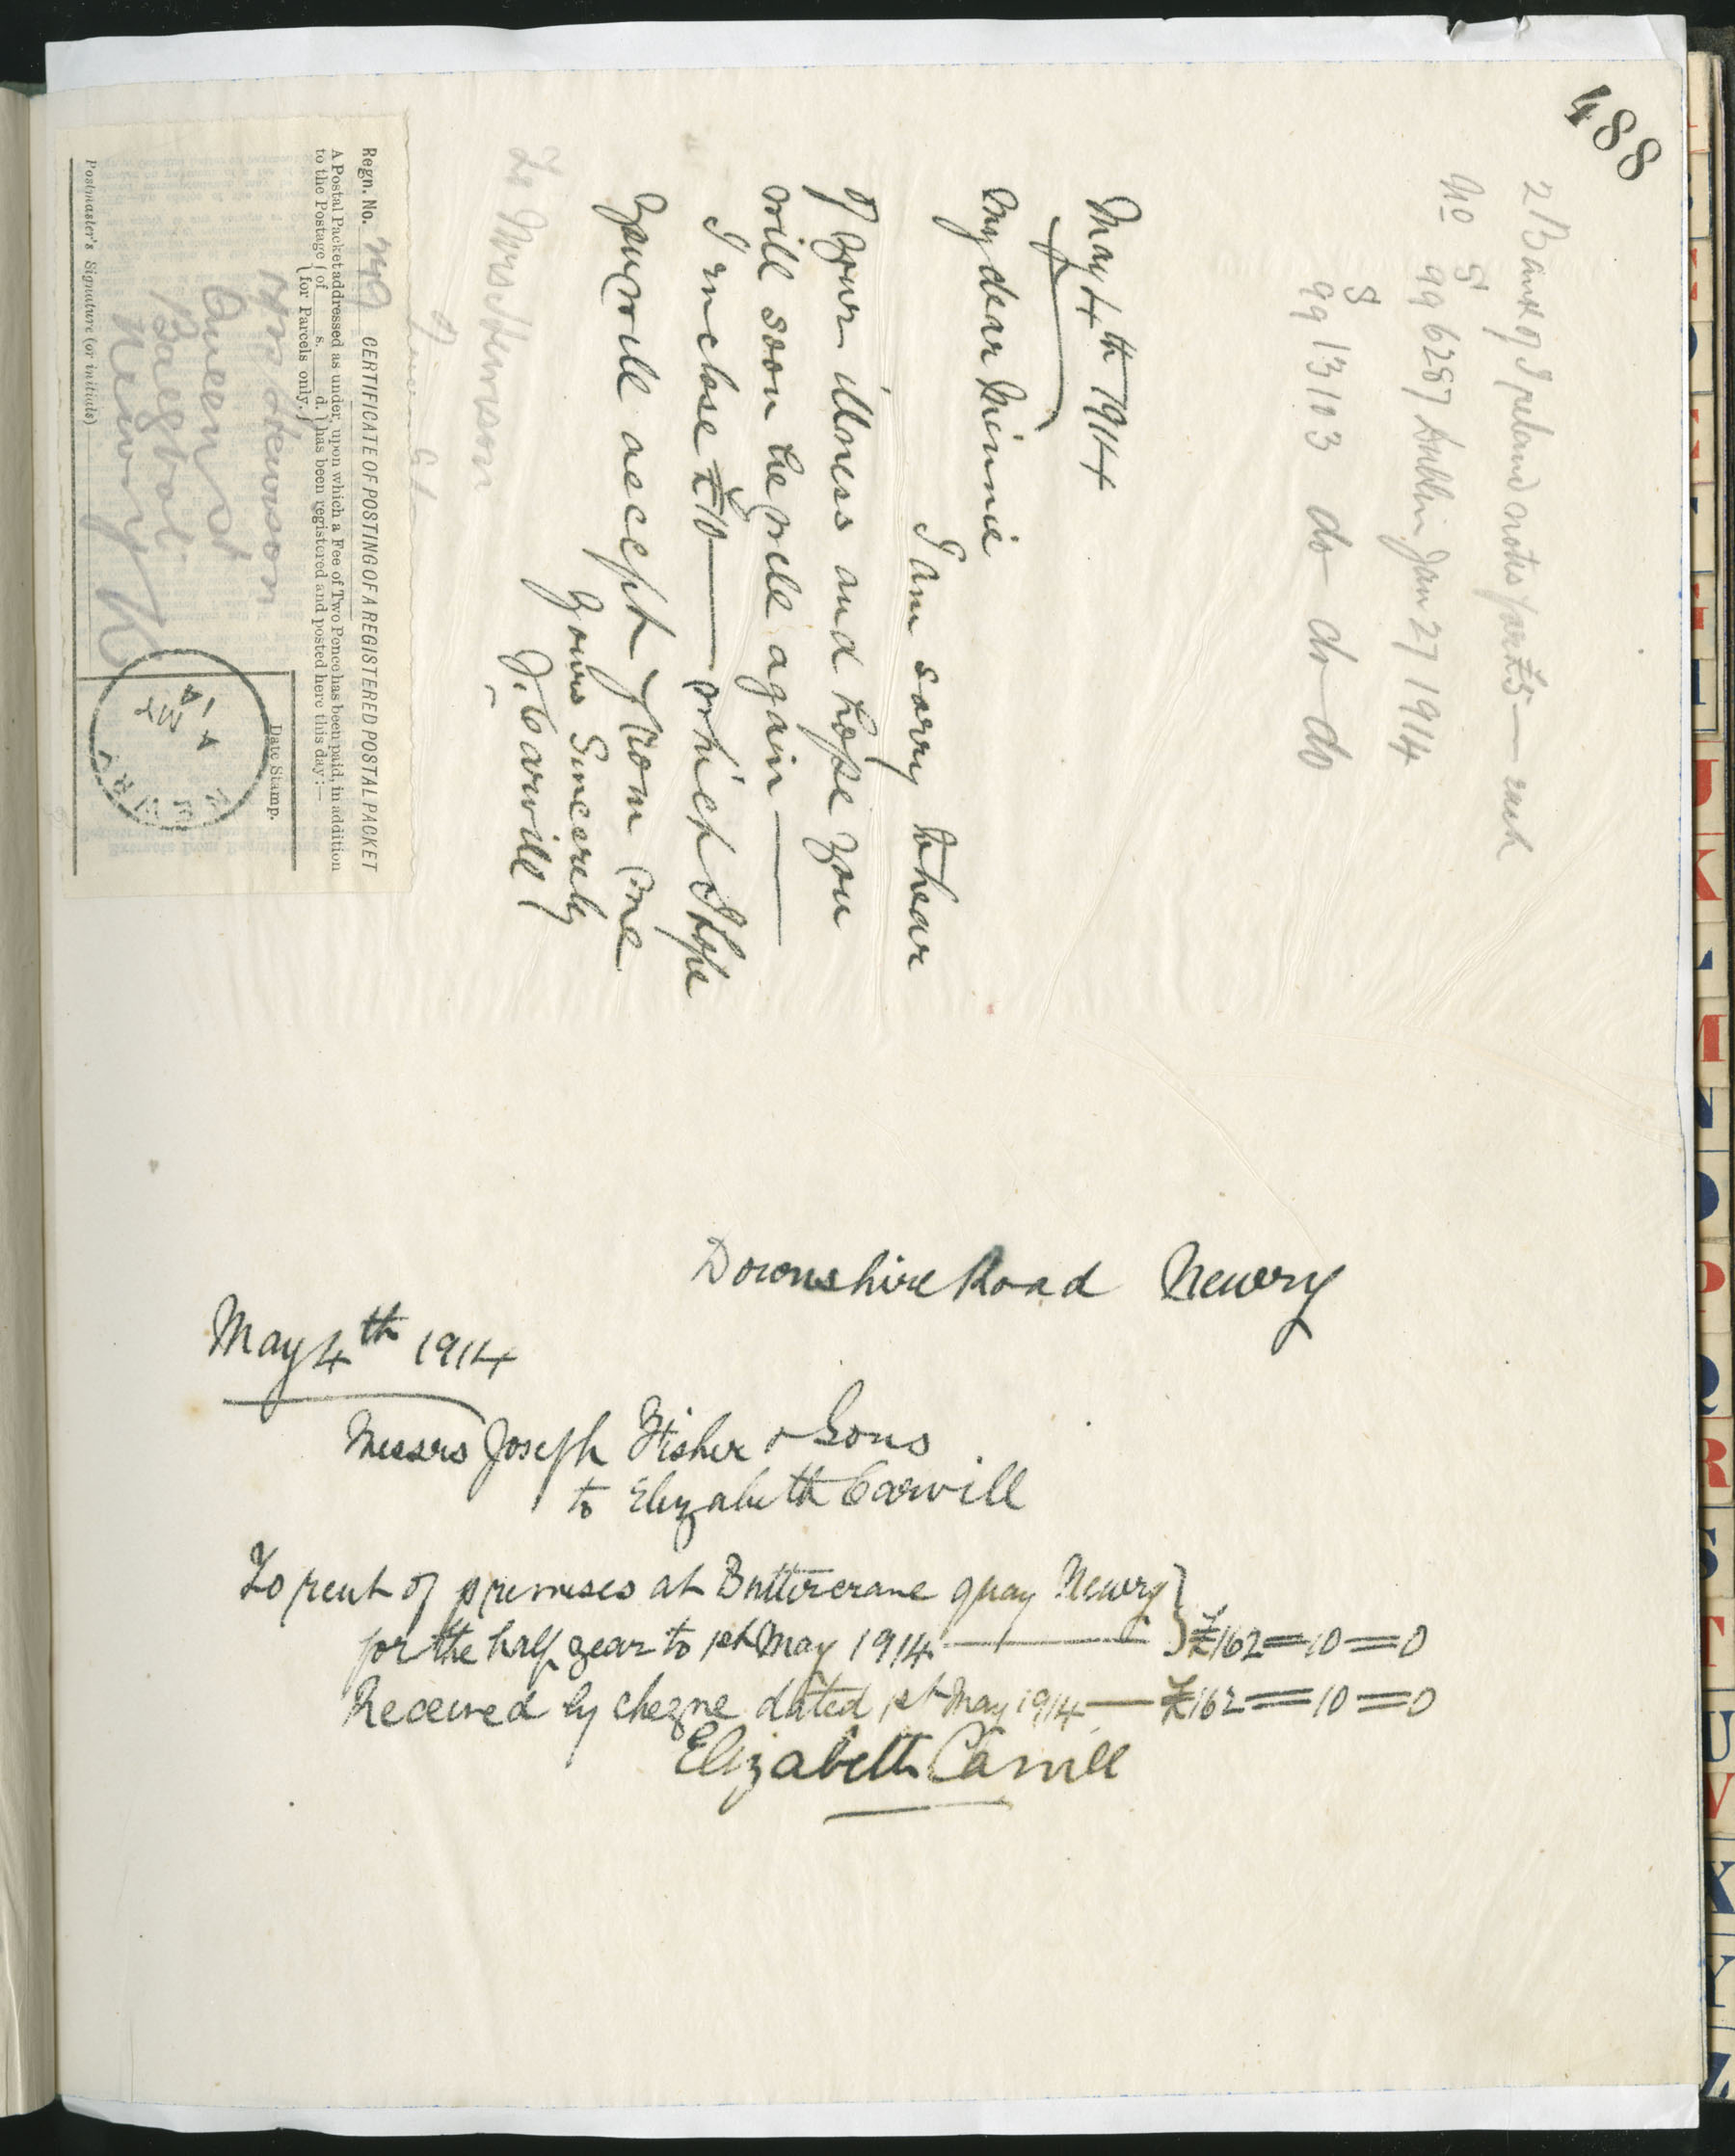 488
2 Bank of Ireland notes for £5 — each
No S 99 6287 Dublin Jan 27 1914
S 99 13103 do do do
May 4th 1914
My dear Minnie
I am sorry to hear
of your illness and hope you
will soon be well again —
I inclose £10 — which I hope
you will accept from me
Yours Sincerely
J. Carvill
To Mrs Hewson
Regn. No. CERTIFICATE OF POSTING OF A REGISTERED POSTAL PACKET
A Postal Packet addressed as under, upon which a Fee of Two Pence has been paid, in addition
to the Postage { of s. d. } has been registered and posted here this day:—
{ for Parcels only. }
Date Stamp.
Mrs Hewson
Queen St
Newry
NEWRY
A
MY
14
Postmaster's Signature (or initials)
Downshire Road Newry
May 4th 1914
Messrs Joseph Fisher & Sons
to Elizabeth Carvill
To rent of premises at Buttercrane quay Newry }
for the half year to 1st May 1914 — } £162=10=0
Received by cheque dated 1st May 1914 — £162=10=0
Elizabeth Carvill